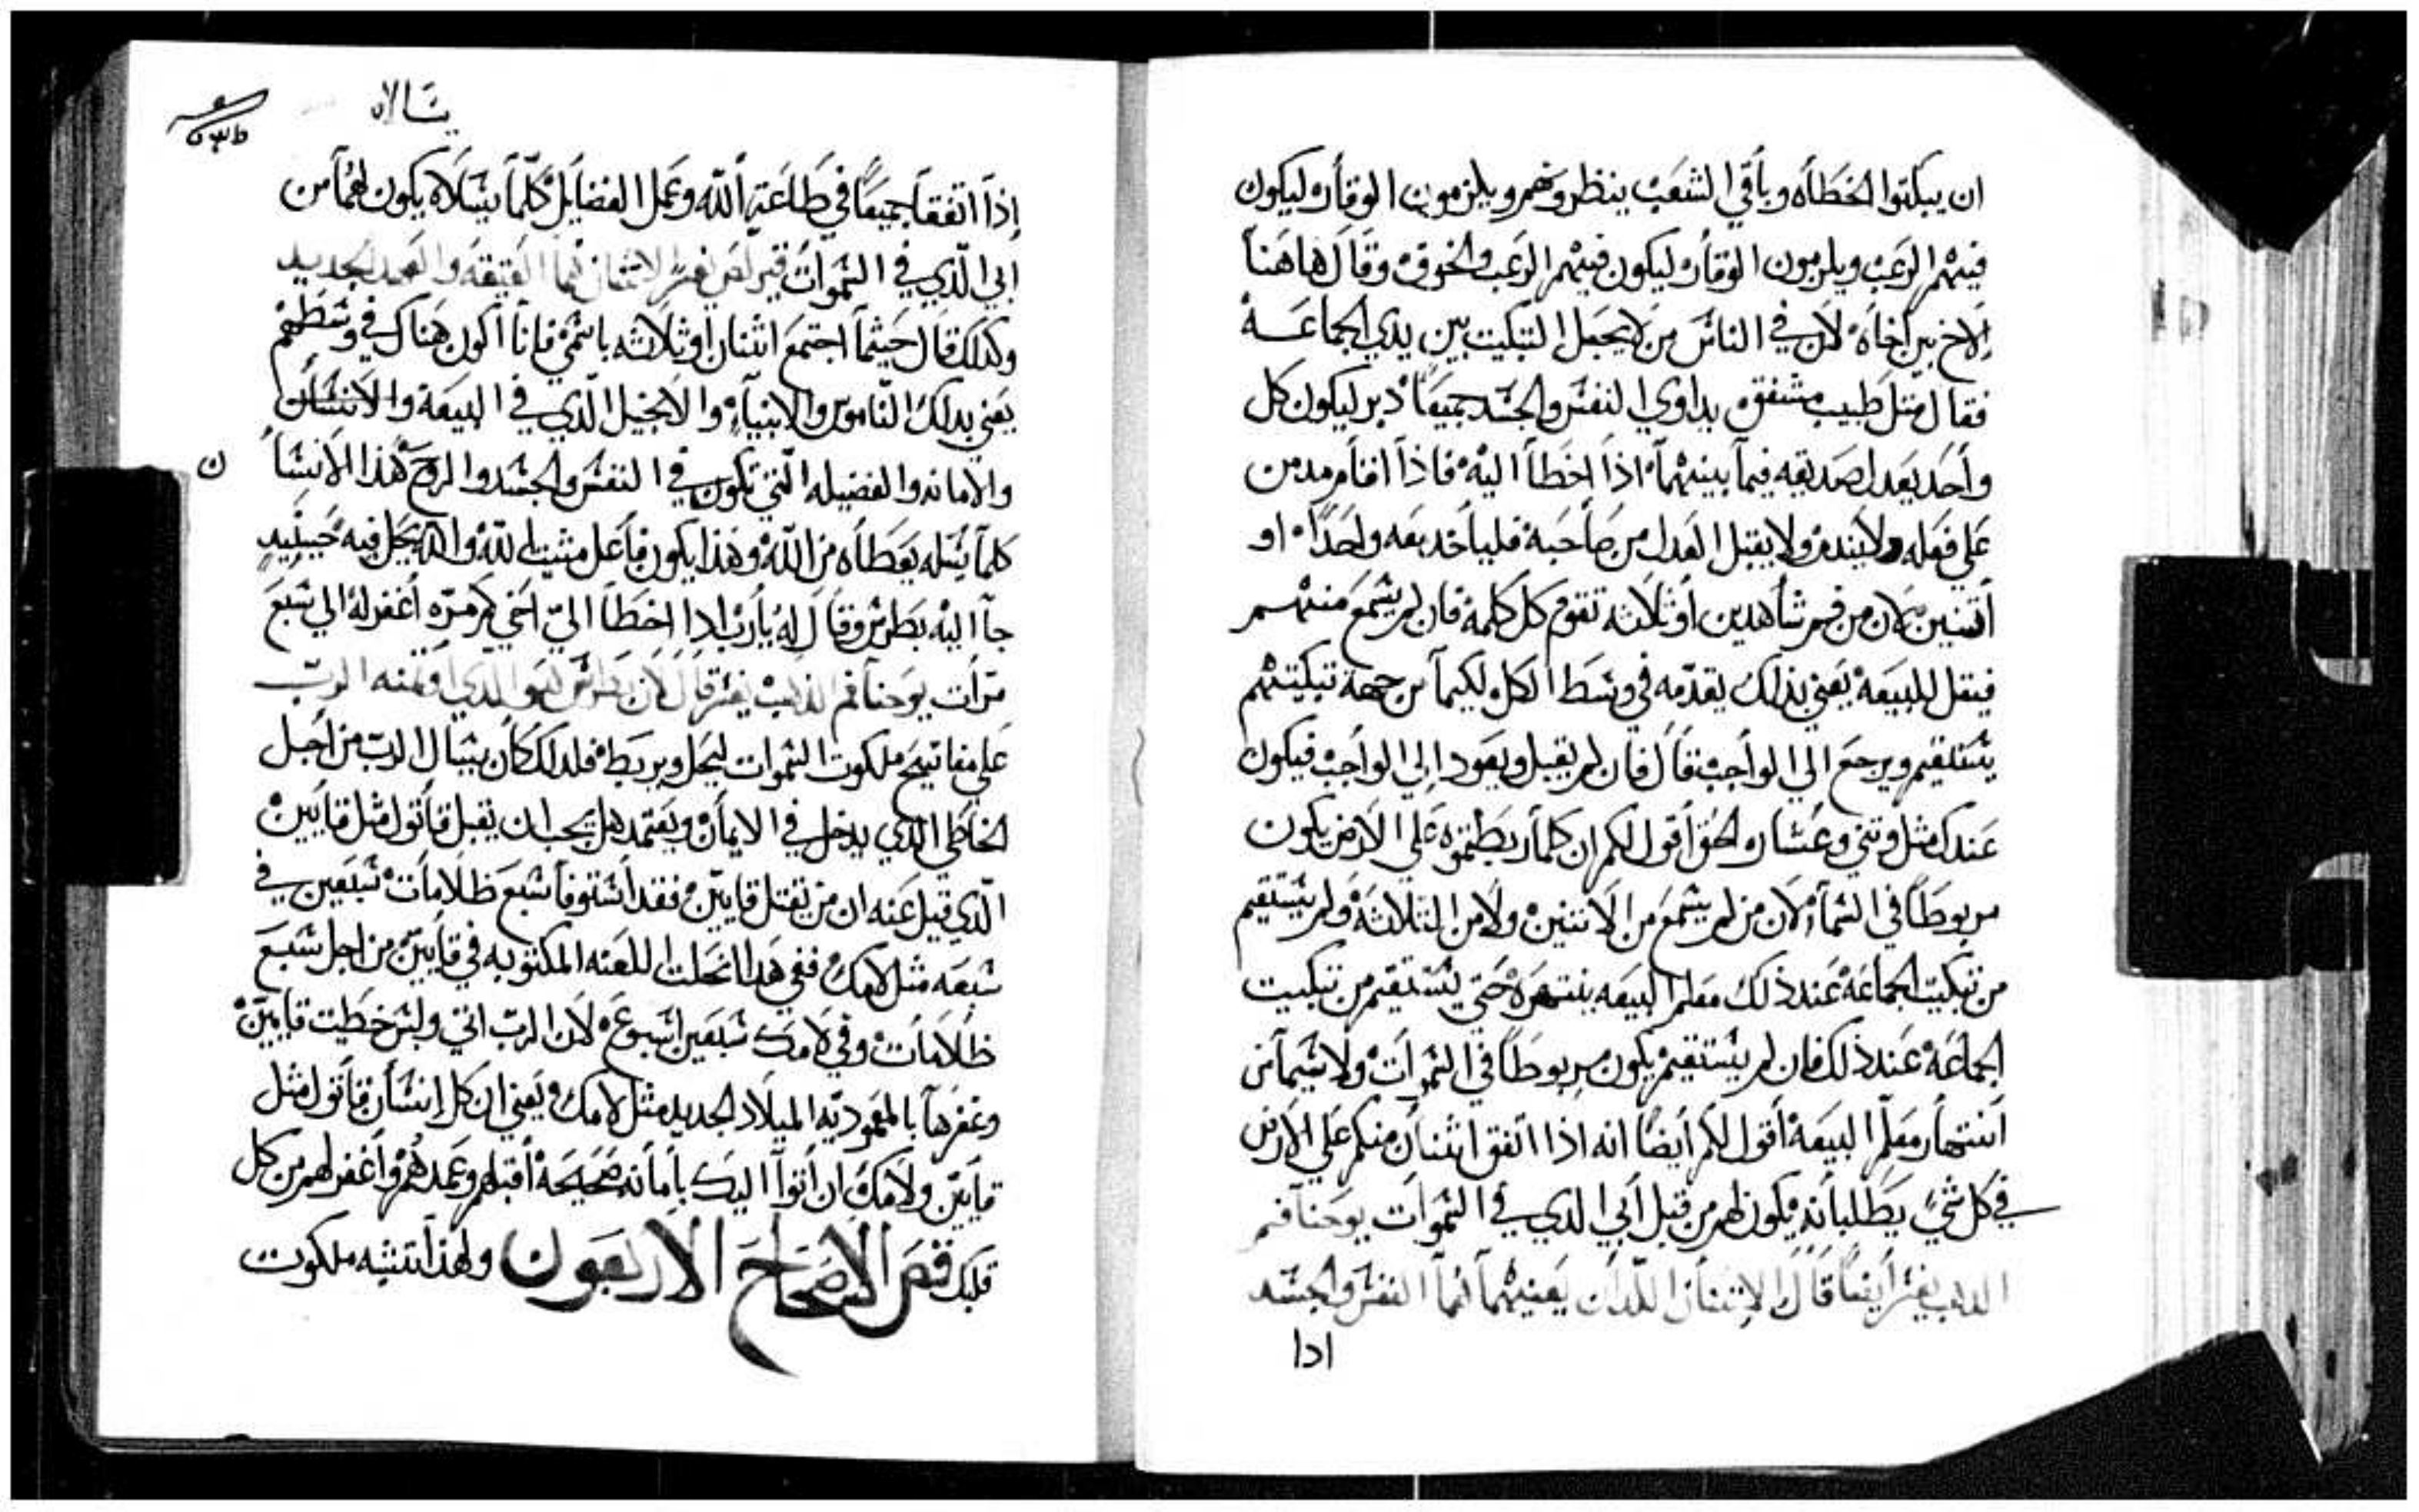 ان يبكتوا الخطاه وباقي الشعب ينظرونهم ويلزمون الوقار ليكون
فيهم الرعب ويلزمون الوقار ليكون فيهم الرعب والخوف وقال هاهنا
الاخ بين اخاه لان في الناس من لا يحتمل التبكيت بين يدي الجماعه
فقال مثل طبيب مشفق يداوي النفس والجسد جميعا دبر ليكون كل
واحد يعدل صديقه فيما بينهما اذا اخطا اليه فاذا اقام مدمن
علي فعله ولا يندم ولا يقبل العدل من صاحبه فلياخد معه واحدا او
اتنين لان من فم شاهدين او ثلاثه تقوم كل كلمة فان لم يسمع منهم
فيقل للبيعه يعني بذلك يقدمه في وسط الكل لكيما من جهة تبكيتهم
يستقيم ويرجع الي الواجب قال فان لم يقبل ويعود الي الواجب فيكون
عندك مثل وتني وعشار الحق اقول لكم ان كلما ربطتموه علي الارض يكون
مربوطا في السما لان من لم يسمع من الاتنين ولا من التلاتة ولم يستقيم
من تبكيت الجماعة عند ذلك معلم البيعه ينتهره حتي يستقيم من تبكيت
الجماعة عند ذلك فان لم يستقيم يكون مربوطا في السموات ولا سيما من
انتهار معلم البيعة اقول لكم ايضا انه اذا اتفق اثنان منكم علي الارض
في كل شي يطلبانه فيكون لهم من قبل ابي الدي في السموات يوحنا فم
الدهب يفسر ايضا قال الاتنان اللدان يعنيهما انما النفس والجسد
ادا
يسالاه
اذا اتفقا جميعا في طاعة الله وعمل الفضايل كلما يسالاه يكون لهما من
ابي الذي في السموات الاتنان هما العتيقه والعهد الجديد
وكدلك قال حيثما اجتمع اثنان او ثلاثه باسمي فانا اكون هناك في وسطهم
يعني بدلك الناموس والانبياء والانجيل الذي في البيعة والانسان
والامانه والفضيله التي تكون في النفس والجسد والروح هذا الانسا
ن
كلما يسله يعطاه من الله وهذا يكون فاعل مشيت الله والله يحل فيه حينيد
جا اليه بطرس وقال له يارب ادا اخطا الي اخي كم مره اغفر له الي سبع
مرات يوحنا فم الدهب يفسر قال لان بطرس هو الدي الرب
علي مفاتيح ملكوت السموات ليحل ويربط فلدلك كان يسال الرب من اجل
الخاطي الذي يدخل في الايمان ويعتمد هل يجب ان يقبل قاتول مثل قايين
الذي قيل عنه ان من يقتل قايين فقد استوفا سبع ظلامات سبعين في
سبعه مثل لامك ففي هدا انحلت اللعنه المكتوبه في قايين من اجل سبع
ظلامات وفي لامك سبعين اسبوعه لان الرب اتي ولبس خطيت قايين
وغفرها بالمعموديه الميلاد الجديد مثل لامك ويعني ان كل انسان قاتول مثل
قايين ولامك ان اتوا اليك بامانه صحيحة اقبلهم وعمدهم واغفر لهم من كل
قلبك فص الاصحاح الاربعون ولهذا تشبه ملكوت